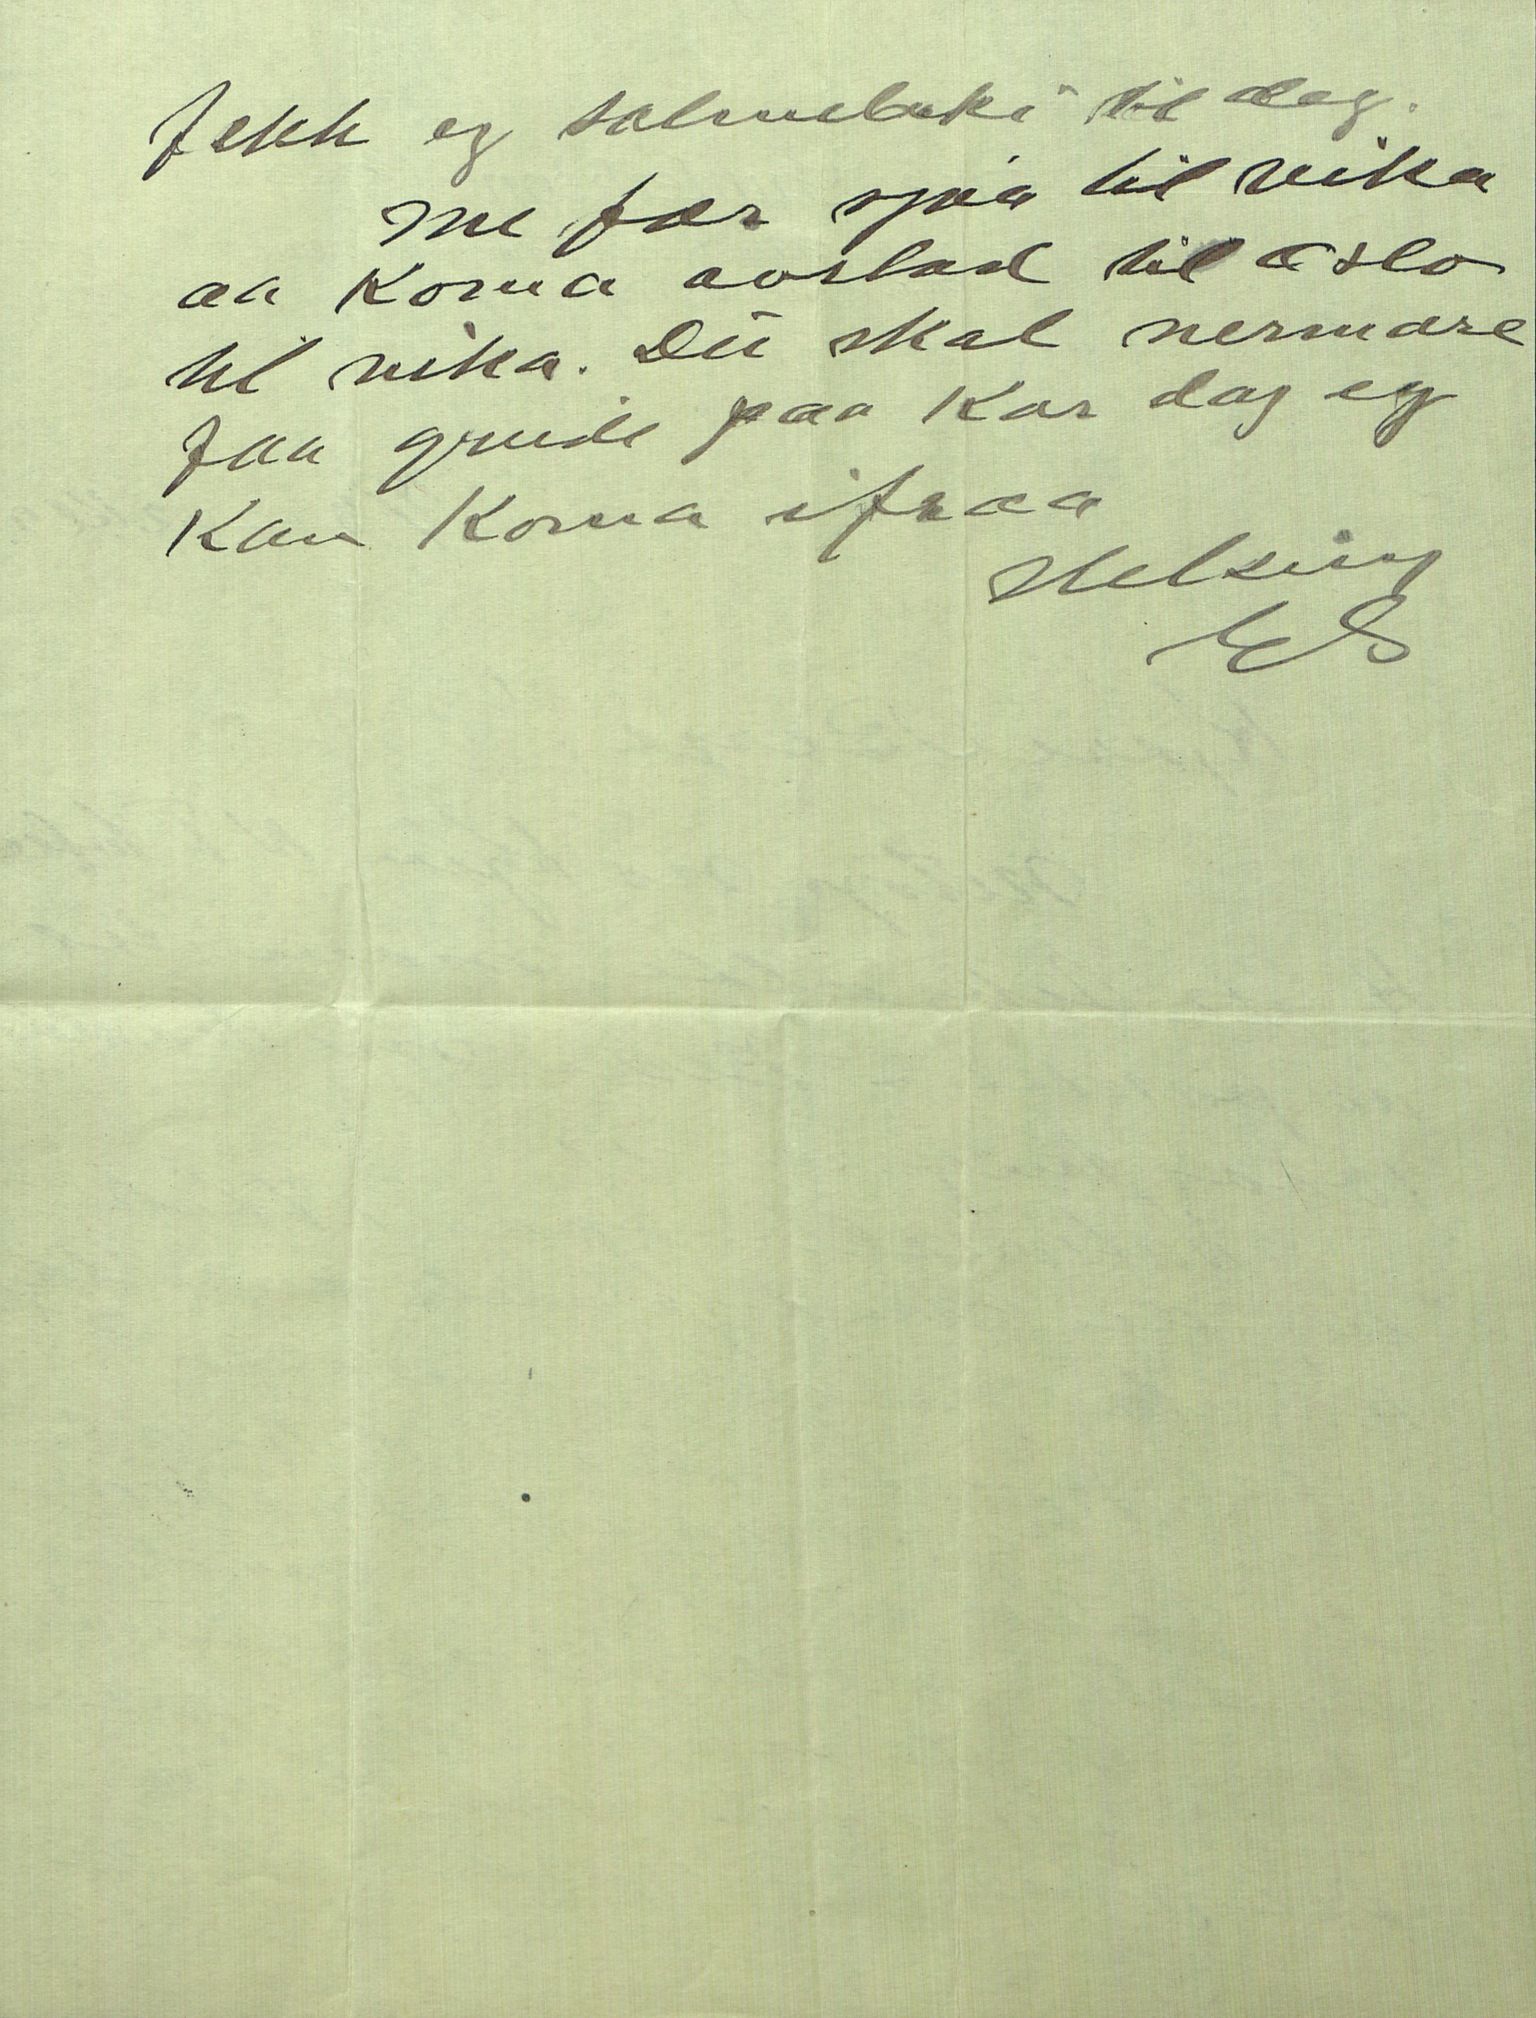 fekk eg salmeboki til deg.
Me fær sjaa til vika
aa koma avstad til Oslo
til vika. Du skal nermare
faa greide paa kor dag eg
kan koma ifraa
Helsing
ES